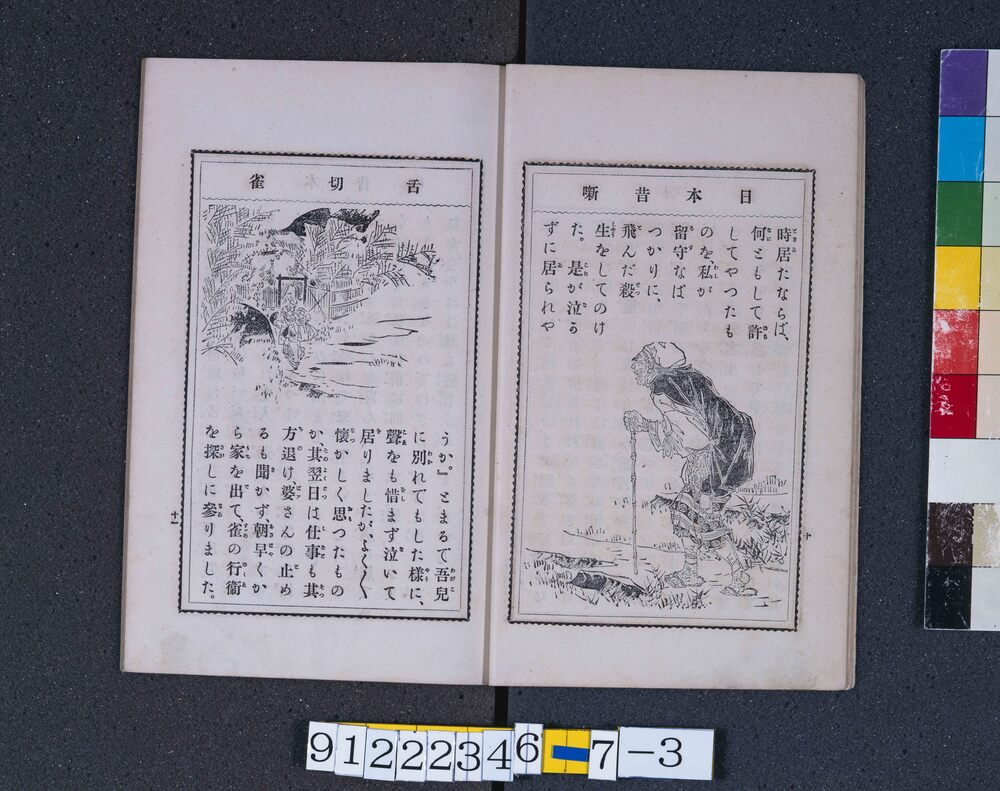 日本昔噺
時居たならば、
何ともして許
してやつたも
のを、私が
留守なば
つかりに、
飛んだ殺
生をしてのけ
た。是が泣ゐ
ずに居られや
十
舌切雀
うか。』とまるで吾兒
に別れてもした様に、
聲をも惜まず泣いて
居りましたが、よく〱
懐かしく思つたもの
か、其翌日は仕事も其
方退け、婆さんの止め
るも聞かず、朝早くか
ら家を出て、雀の行衛
を探しに參りました。
十一
91222346-7-3